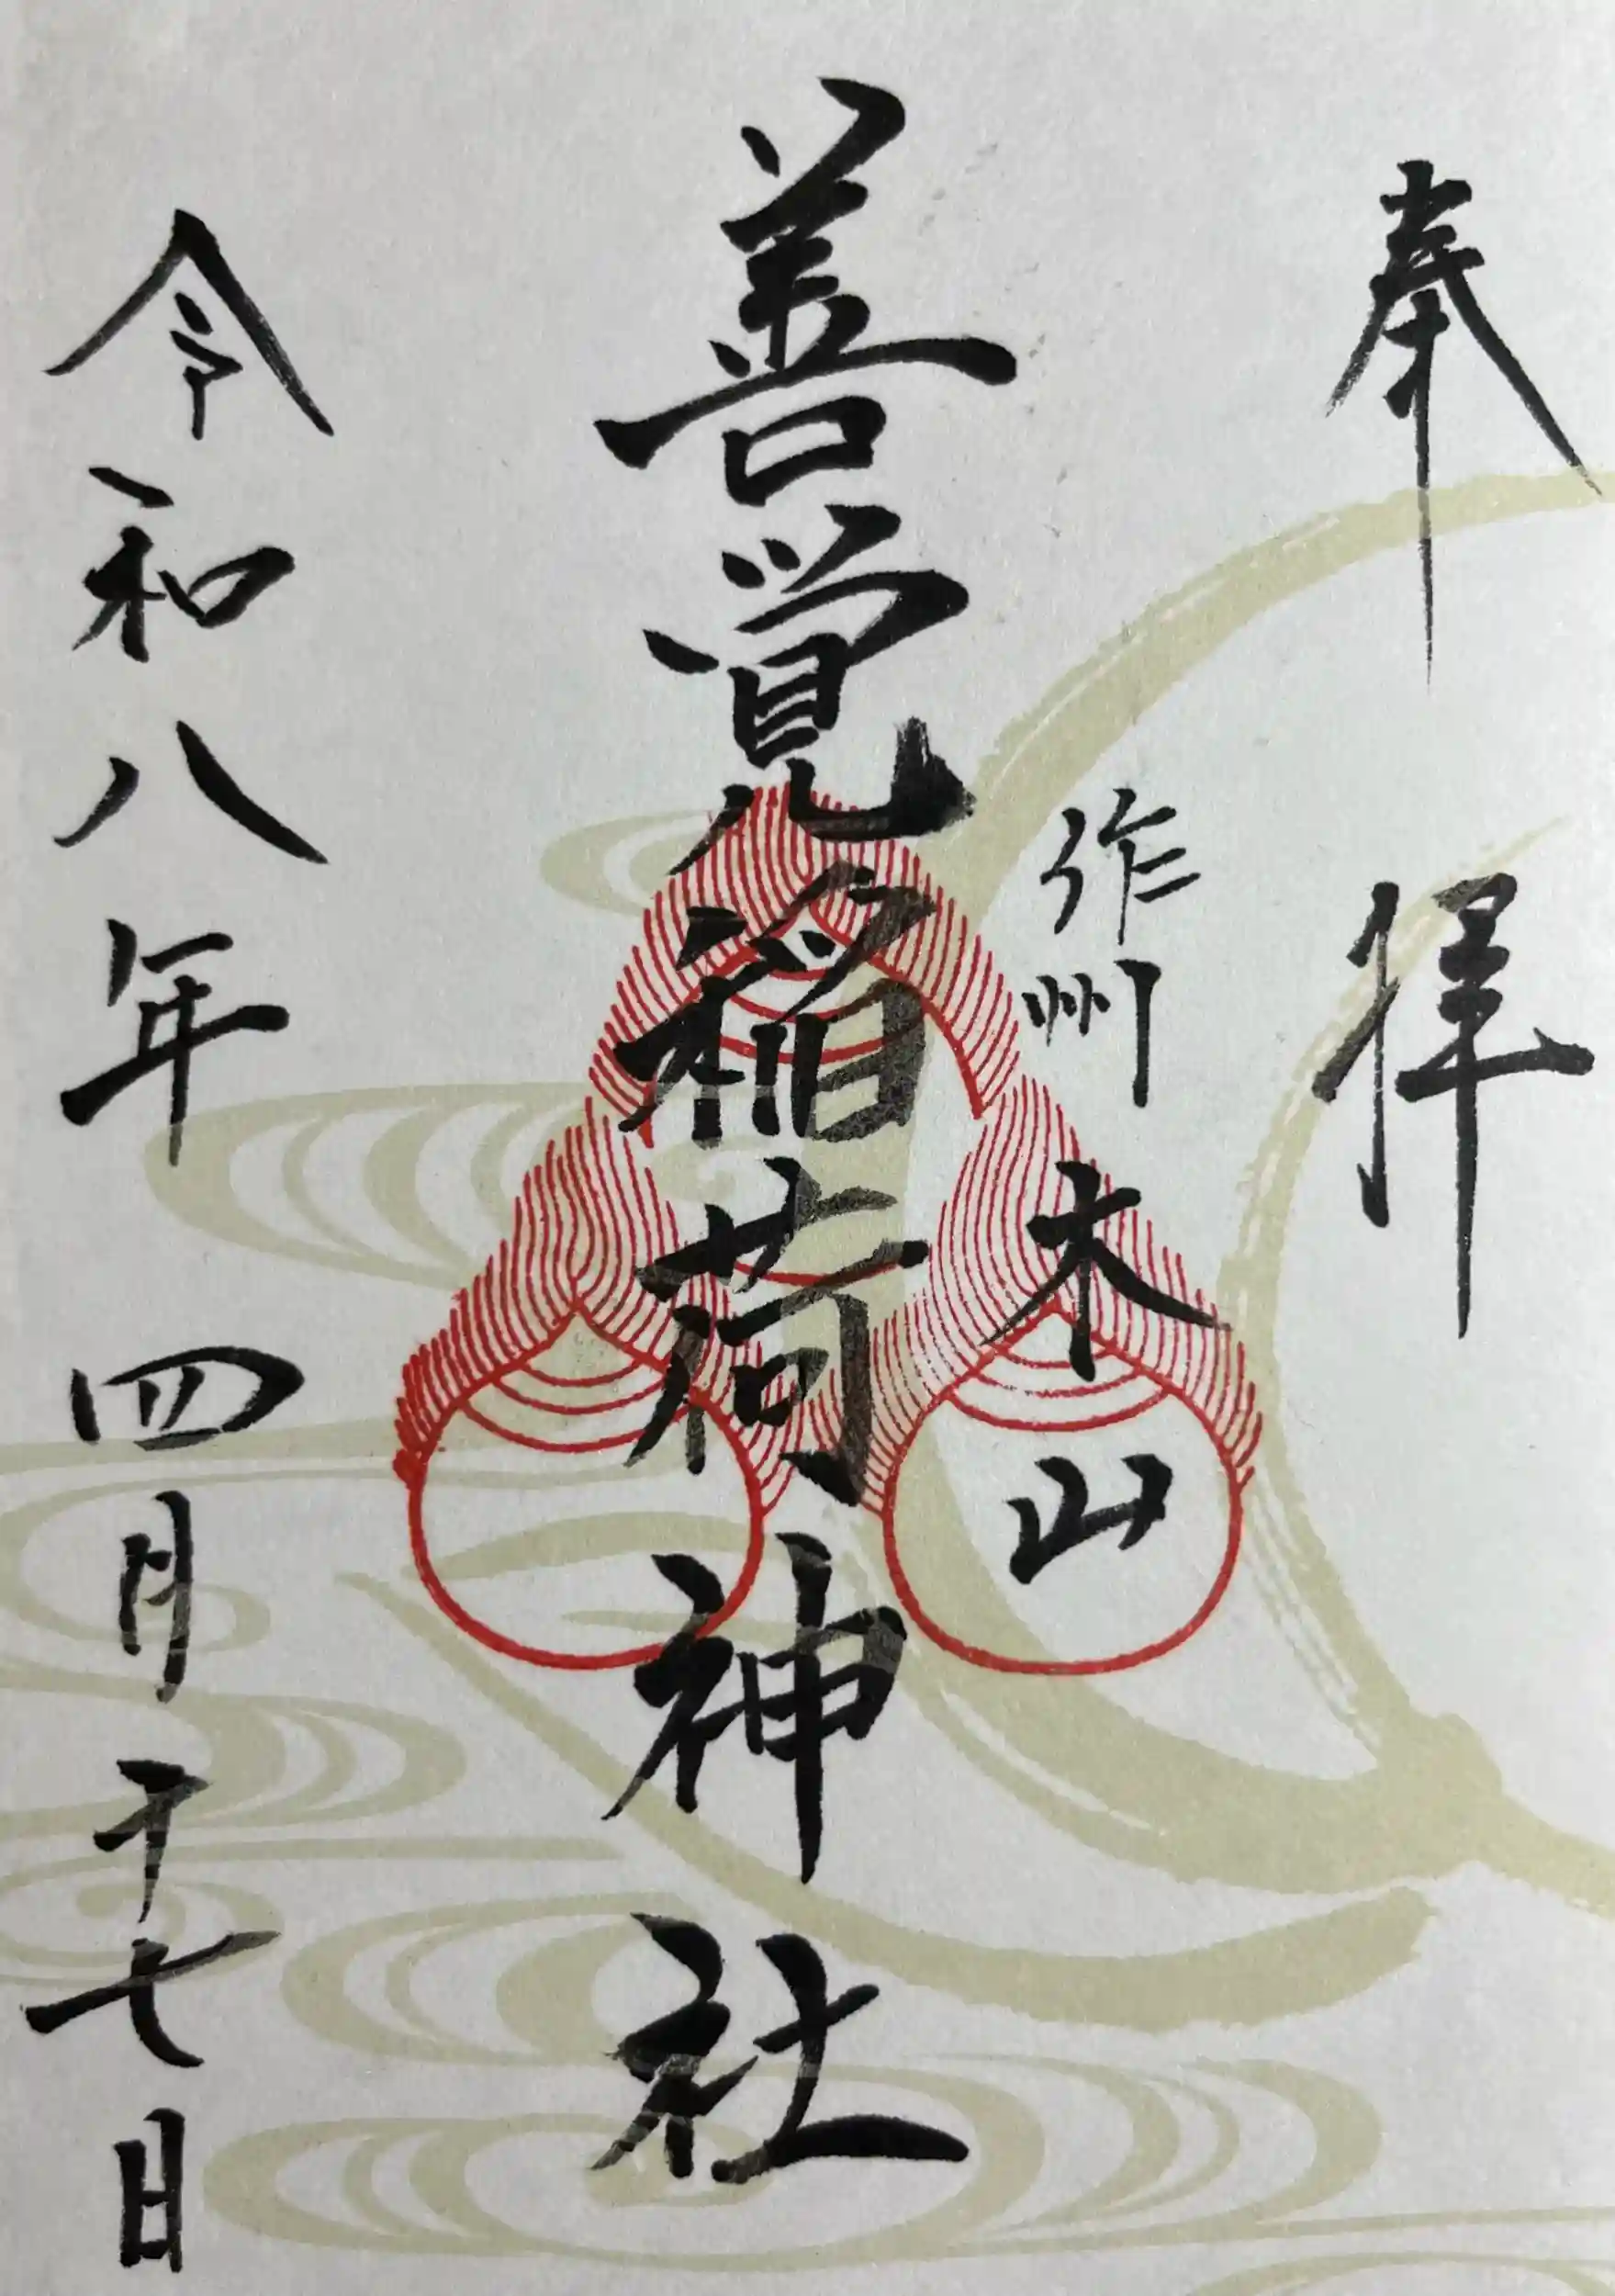 奉拝
作州 木山
善覚稲荷神社
令和八年四月十七日